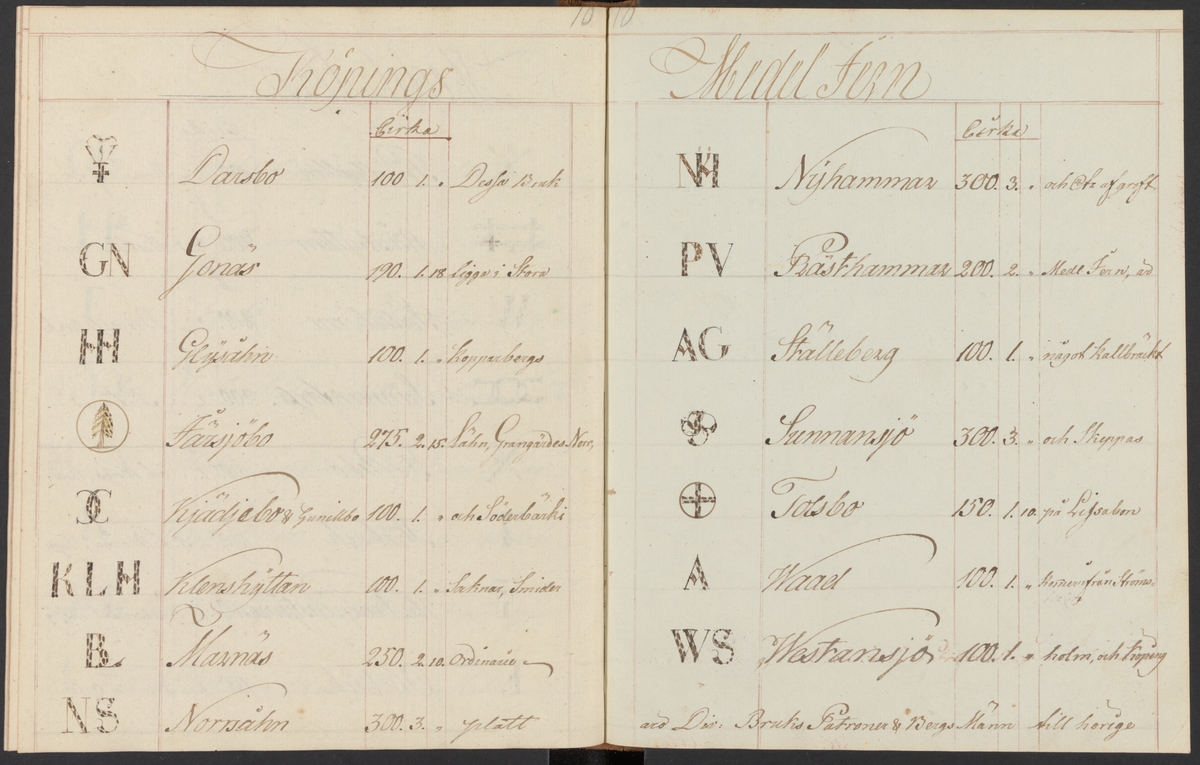 10 10
Köpings
Cirka
Darsbo 100 1. " Dessa Bruk
GN Gonäs 190. 1. 18. ligga i Stora
HH Glysåhn 100. 1. " Kopparbergs
Färsjöbo 275. 2. 15. Lähn, Grangärdes Norr,
Kjädjebo & Gunillbo 100. 1. " och Söderbärki
KLH Klenshyttan 100. 1. " Soknar, Smider
BL Marnäs 250. 2. 10. Ordinarie
NS Norrsåhn 300. 3. " platt
Medel Jern
Cirka
NH Nÿhammar 300. 3. " och &c af groft
PV Pästhammar 200. 2. " Medl Jern, är
AG Ställeberg 100. 1. " något kallbräckt
Sunnansjö 300. 3. " och Skeppas
Tolsbo 150. 1. 10. på Lissabon
A Waad 100. 1. " från Ströms-
WS Westansjö 100. 1. " holm, och Köping
ard Div: Bruks Patroner & Bergs Männ till hörige